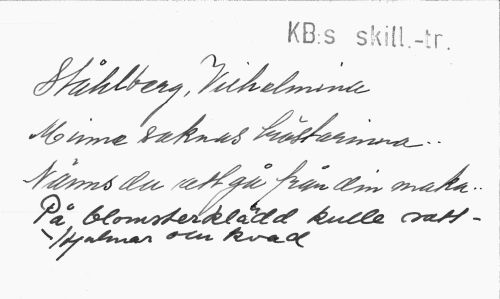 KB:s skill.-tr.
Ståhlberg, Vilhelmina
Minne saknas tröstarinna..
Nänns du att gå från din maka..
På blomsterklädd kulle satt-
-/Hjalmar och kvad